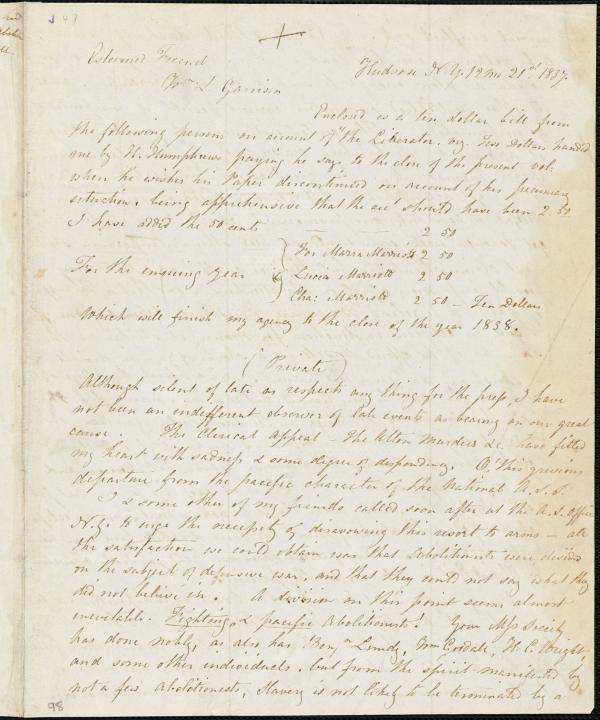 47
Esteemed Friend
Hudson N.Y. 12 mo 21st 1837.
Wm L Garrison
Enclosed is a ten dollar bill from
the following persons on account of "the Liberator. viz. Two Dollars handed
me by H. Humphrews praying he says to the close of the present vol:
when he wishes his Paper discontinued on account of his pecuniary
situation, being apprehensive that the acct should have been 2.50
I have added the 50 cents — 2 50
For Maria Marriott 2 50
For the ensuing year Lucia Marriott 2 50
Cha: Marriott 2 50 – Ten Dollars
Which will finish my agency to the close of the year 1838.
(Private)
Although silent of late as respects any thing for the press, I have
not been an indifferent observer of late events as bearing on our great
cause. The Clerical Appeal – the Alton Murders &c. have filled
my heart with sadness & some degree of despondency. O! this grievous
departure from the pacific character of the National A.S.S.
I & some other of my friends called soon after at the A.S. office
N.Y. to urge the necessity of disavowing this resort to arms – all
the satisfaction we could obtain was that Abolitionists were divided
on the subject of defensive war, and that they could not say what they
did not believe in. A division on this point seems almost
inevitable. Fighting & pacific Abolitionists! Your Mass Society
has done nobly, as also has Benjn Lundy, Wm Goodell, H. C. Wright
and some other individuals, but from the spirit manifested by
not a few Abolitionists, Slavery is not likely to be terminated by a
98